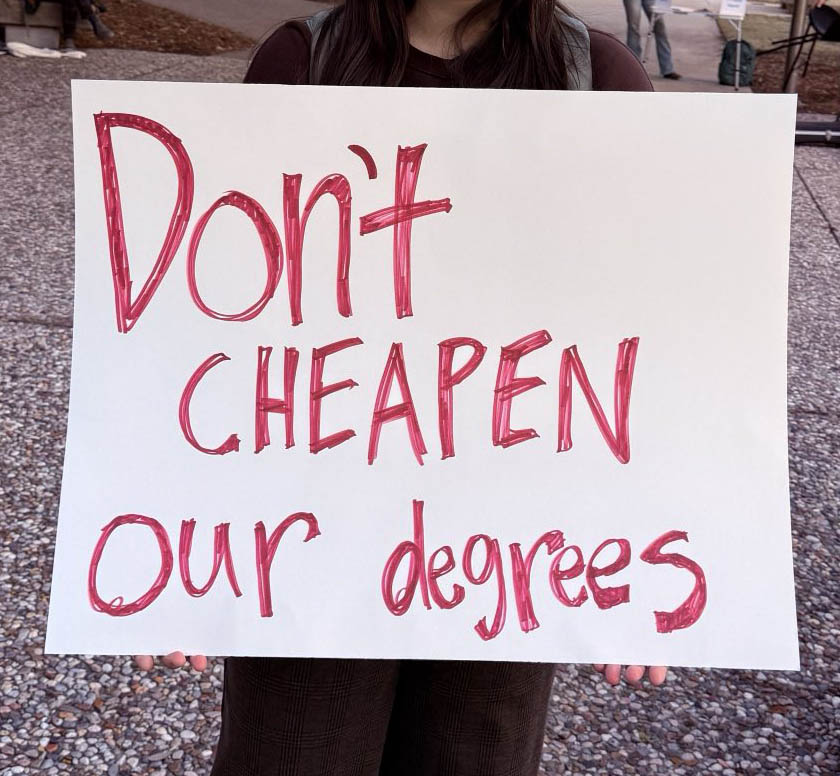 Don't
CHEAPEN
our degrees